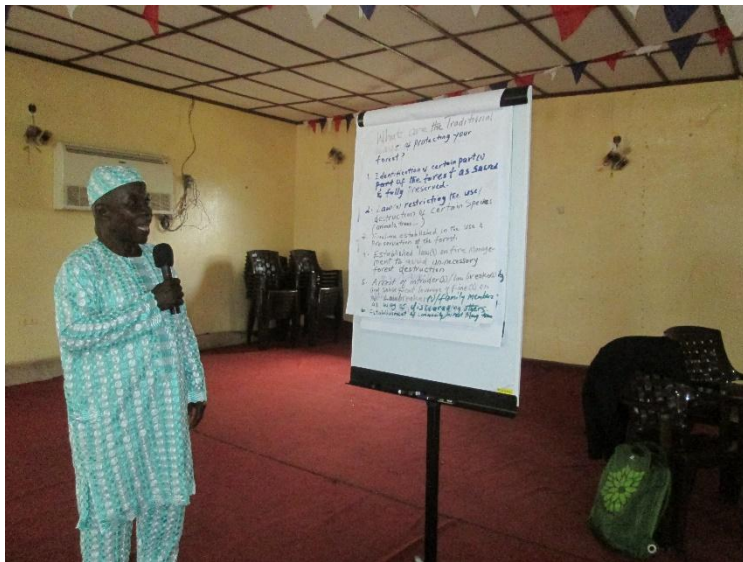 What are the Traditional
ways of protecting your
forest?
1. Identification of certain part(s)
part of the forest as sacred
& fully reserved.
2. Law(s) restricting the use/
destruction of certain species
(animals, trees...)
established in the use &
Preservation of the forest.
Established law(s) on fire manage-
ment to avoid un-necessary
forest destruction
5. Arrest of intruder(s)/law breaker(s) by
of fine(s) on
family members
as way of discouraging others
Establishment of community forest